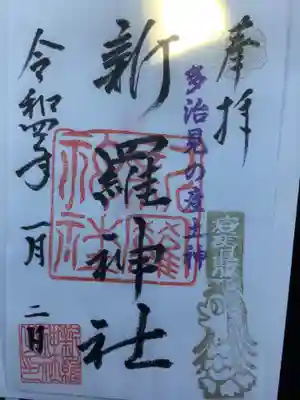 奉拝
多治見の産土神
新羅神社
令和四年一月二日